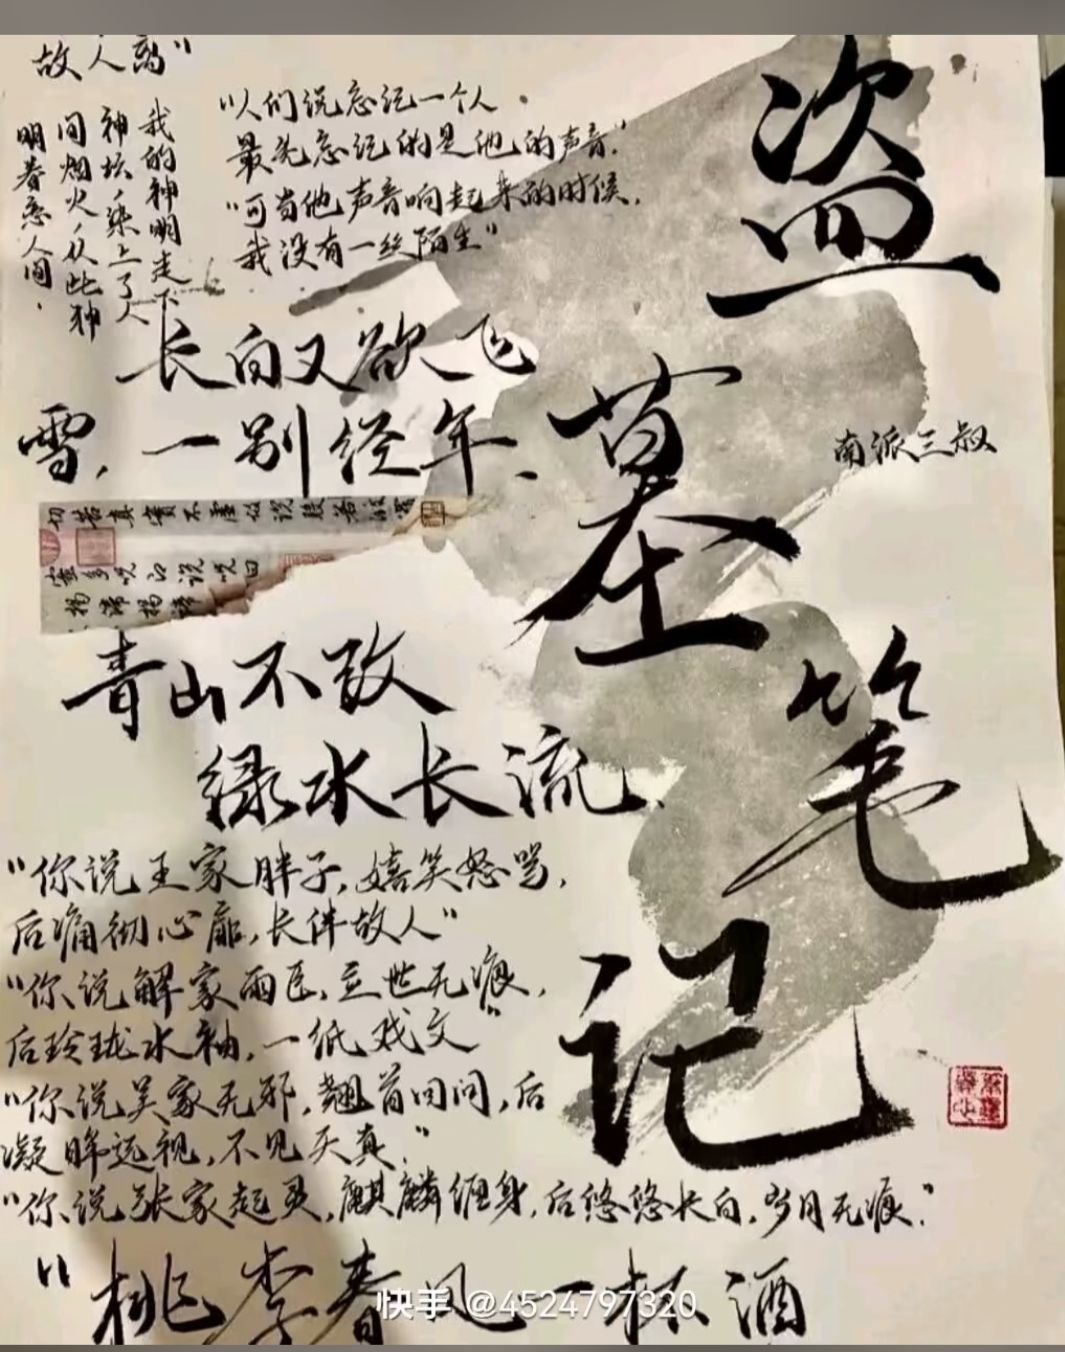 故人离"
我的神明走下
神坛，染上了人
间烟火，从此神
明眷恋人间.
"人们说忘记一个人
最先忘记的是他的声音."
"可当他声音响起来的时候,
我没有一丝陌生"
盗墓笔记
南派三叔
长白又欲飞
雪, 一别经年.
切苦真實不虛故说般若
青山不改
绿水长流.
"你说王家胖子, 嬉笑怒骂,
后痛彻心扉, 长伴故人"
"你说解家雨臣, 立世无痕,
后玲珑水袖, 一纸戏文"
"你说吴家无邪, 翘首回问, 后
凝眸远视, 不见天真."
"你说张家起灵, 麒麟缠身, 后悠悠长白, 岁月无痕."
"桃李春风一杯酒
快手 @4524797320